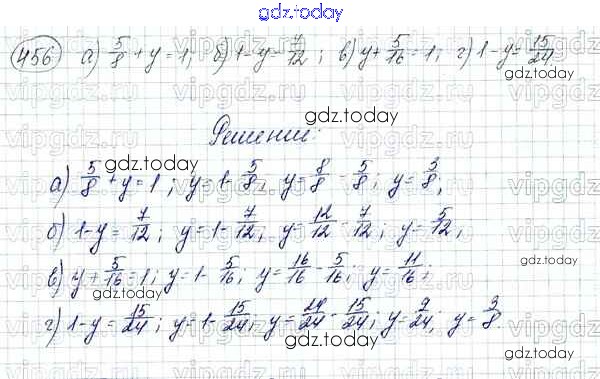 gdz.today
456 а) 5/8 + y = 1; б) 1 - y = 7/12; в) y + 5/16 = 1; г) 1 - y = 15/24.
gdz.today
gdz.today
Решение:
gdz.today
а) 5/8 + y = 1; y = 1 - 5/8; y = 8/8 - 5/8; y = 3/8;
gdz.today
б) 1 - y = 7/12; y = 1 - 7/12; y = 12/12 - 7/12; y = 5/12;
в) y + 5/16 = 1; y = 1 - 5/16; y = 16/16 - 5/16; y = 11/16;
gdz.today
г) 1 - y = 15/24; y = 1 - 15/24; y = 24/24 - 15/24; y = 9/24; y = 3/8.
gdz.today